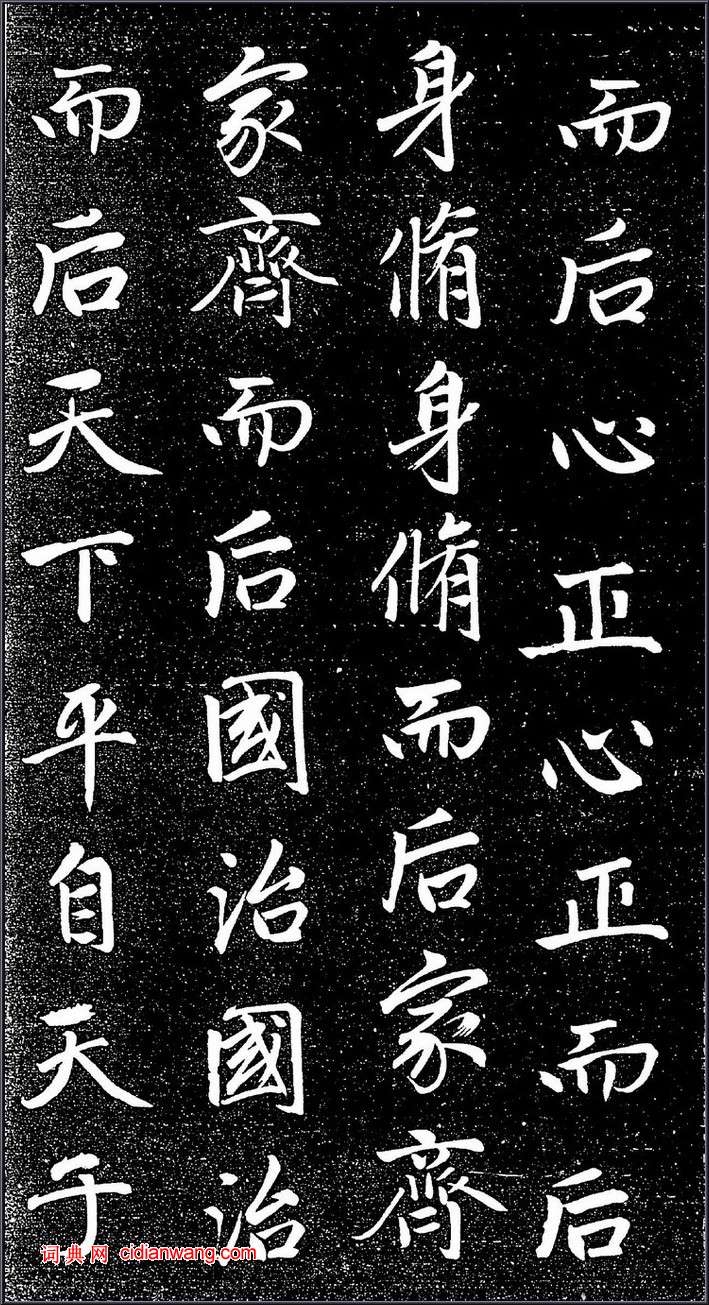 而后心正心正而后
身脩身脩而后家齊
家齊而后國治國治
而后天下平自天子
词典网 cidianwang.com